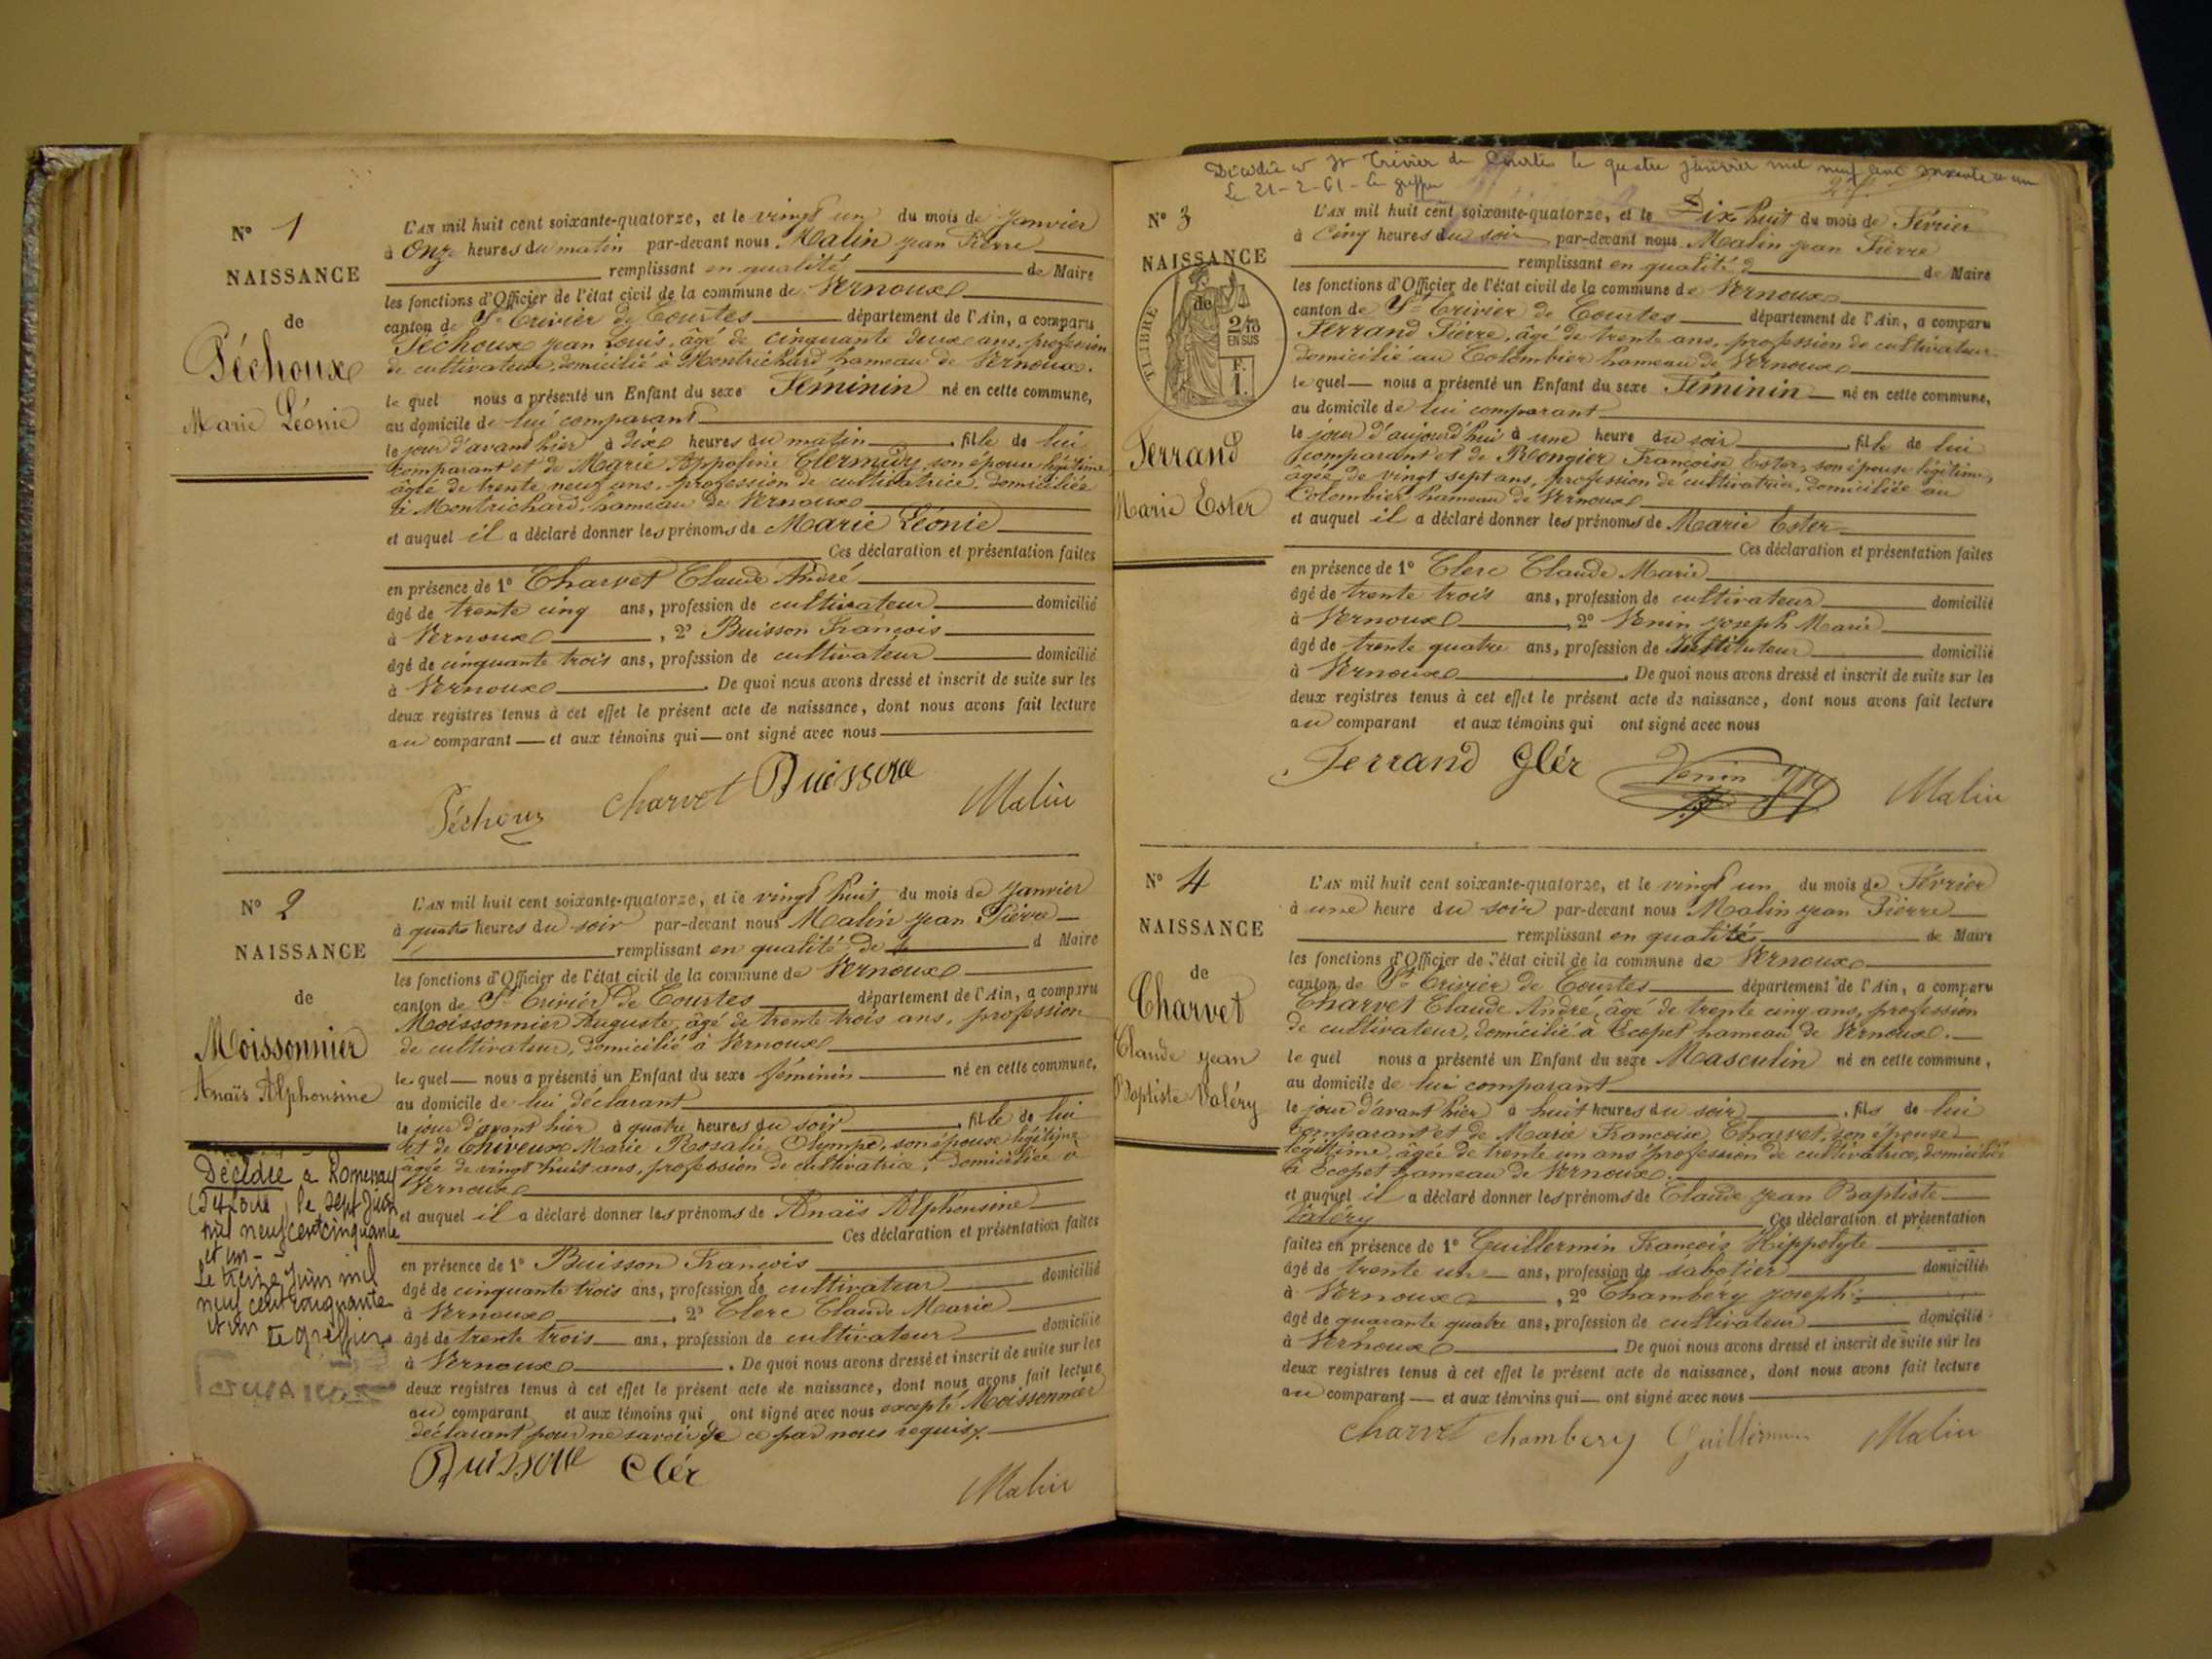 N° 1
NAISSANCE
de
Péchoux
Marie Léonie
L'AN mil huit cent soixante-quatorze, et le vingt un du mois de Janvier
à Onze heures du matin par-devant nous Malin Jean Pierre
remplissant en qualité de Maire
les fonctions d'Officier de l'état civil de la commune de Vernoux
canton de St Trivier de Courtes département de l'Ain, a comparu
Péchoux Jean Louis, âgé de cinquante deux ans, profession
de cultivateur, domicilié à Montrichard hameau de Vernoux.
le quel nous a présenté un Enfant du sexe Féminin né en cette commune,
au domicile de lui comparant
le jour d'avant hier à dix heures du matin, fille de lui
comparant et de Marie Appoline son épouse légitime
âgée de trente neuf ans, profession de cultivatrice, domiciliée
à Montrichard, hameau de Vernoux
et auquel il a déclaré donner les prénoms de Marie Léonie
Ces déclaration et présentation faites
en présence de 1° Charvet Claude André
âgé de trente cinq ans, profession de cultivateur domicilié
à Vernoux, 2° Buisson François
âgé de cinquante trois ans, profession de cultivateur domicilié
à Vernoux. De quoi nous avons dressé et inscrit de suite sur les
deux registres tenus à cet effet le présent acte de naissance, dont nous avons fait lecture
au comparant et aux témoins qui ont signé avec nous
Péchoux Charvet Buisson Malin
N° 2
NAISSANCE
de
Moissonnier
Anaïs Alphonsine
Décédée à Romenay
le sept Juin
mil neuf cent cinquante
et un
Le treize Juin mil
neuf cent cinquante
et un Le greffier
L'AN mil huit cent soixante-quatorze, et le vingt huit du mois de Janvier
à quatre heures du soir par-devant nous Malin Jean Pierre
remplissant en qualité de d Maire
les fonctions d'Officier de l'état civil de la commune de Vernoux
canton de St Trivier de Courtes département de l'Ain, a comparu
Moissonnier Auguste, âgé de trente trois ans, profession
de cultivateur, domicilié à Vernoux
le quel nous a présenté un Enfant du sexe féminin né en cette commune,
au domicile de lui déclarant
le jour d'avant hier à quatre heures du soir, fille de lui
et de Chiveux Marie Rosalie Olympe, son épouse légitime
âgée de vingt huit ans, profession de cultivatrice, domiciliée à
Vernoux
et auquel il a déclaré donner les prénoms de Anaïs Alphonsine
Ces déclaration et présentation faites
en présence de 1° Buisson François
âgé de cinquante trois ans, profession de cultivateur domicilié
à Vernoux, 2° Clerc Claude Marie
âgé de trente trois ans, profession de cultivateur domicilié
à Vernoux. De quoi nous avons dressé et inscrit de suite sur les
deux registres tenus à cet effet le présent acte de naissance, dont nous avons fait lecture
au comparant et aux témoins qui ont signé avec nous excepté Moissonnier
déclarant pour ne savoir de ce par nous requis.
Buisson Clér Malin
Décédée à St Trivier de Courtes le quatre janvier mil neuf cent soixante et un
Le 21-2-61 - Le greffier
N° 3
NAISSANCE
de
TIMBRE
2/10
EN SUS
F.
1.
Ferrand
Marie Ester
L'AN mil huit cent soixante-quatorze, et le Dix huit du mois de Février
à Cinq heures du soir par-devant nous Malin Jean Pierre
remplissant en qualité de Maire
les fonctions d'Officier de l'état civil de la commune de Vernoux
canton de St Trivier de Courtes département de l'Ain, a comparu
Ferrand Pierre, âgé de trente ans, profession de cultivateur
domicilié au Colombier hameau de Vernoux
le quel nous a présenté un Enfant du sexe Féminin né en cette commune,
au domicile de lui comparant
le jour d'aujourd'hui à une heure du soir, fille de lui
comparant et de Rongier Françoise Ester, son épouse légitime,
âgée de vingt sept ans, profession de cultivatrice, domiciliée au
Colombier hameau de Vernoux
et auquel il a déclaré donner les prénoms de Marie Ester
Ces déclaration et présentation faites
en présence de 1° Clerc Claude Marie
âgé de trente trois ans, profession de cultivateur domicilié
à Vernoux, 2° Venin Joseph Marie
âgé de trente quatre ans, profession de Instituteur domicilié
à Vernoux. De quoi nous avons dressé et inscrit de suite sur les
deux registres tenus à cet effet le présent acte de naissance, dont nous avons fait lecture
au comparant et aux témoins qui ont signé avec nous
Ferrand Clér Venin Malin
N° 4
NAISSANCE
de
Charvet
Claude Jean
Baptiste Valéry
L'AN mil huit cent soixante-quatorze, et le vingt un du mois de Février
à une heure du soir par-devant nous Malin Jean Pierre
remplissant en qualité de Maire
les fonctions d'Officier de l'état civil de la commune de Vernoux
canton de St Trivier de Courtes département de l'Ain, a comparu
Charvet Claude André, âgé de trente cinq ans, profession
de cultivateur, domicilié à Ecopet hameau de Vernoux.
le quel nous a présenté un Enfant du sexe Masculin né en cette commune,
au domicile de lui comparant
le jour d'avant hier à huit heures du soir, fils de lui
comparant et de Marie Françoise Charvet, son épouse
légitime, âgée de trente un ans profession de cultivatrice, domiciliée
à Ecopet hameau de Vernoux.
et auquel il a déclaré donner les prénoms de Claude Jean Baptiste
Valéry Ces déclaration et présentation
faites en présence de 1° Guillermin François Hippolyte
âgé de trente un ans, profession de sabotier domicilié
à Vernoux, 2° Chambéry Joseph
âgé de quarante quatre ans, profession de cultivateur domicilié
à Vernoux. De quoi nous avons dressé et inscrit de suite sur les
deux registres tenus à cet effet le présent acte de naissance, dont nous avons fait lecture
au comparant et aux témoins qui ont signé avec nous
Charvet Chambery Guillermin Malin